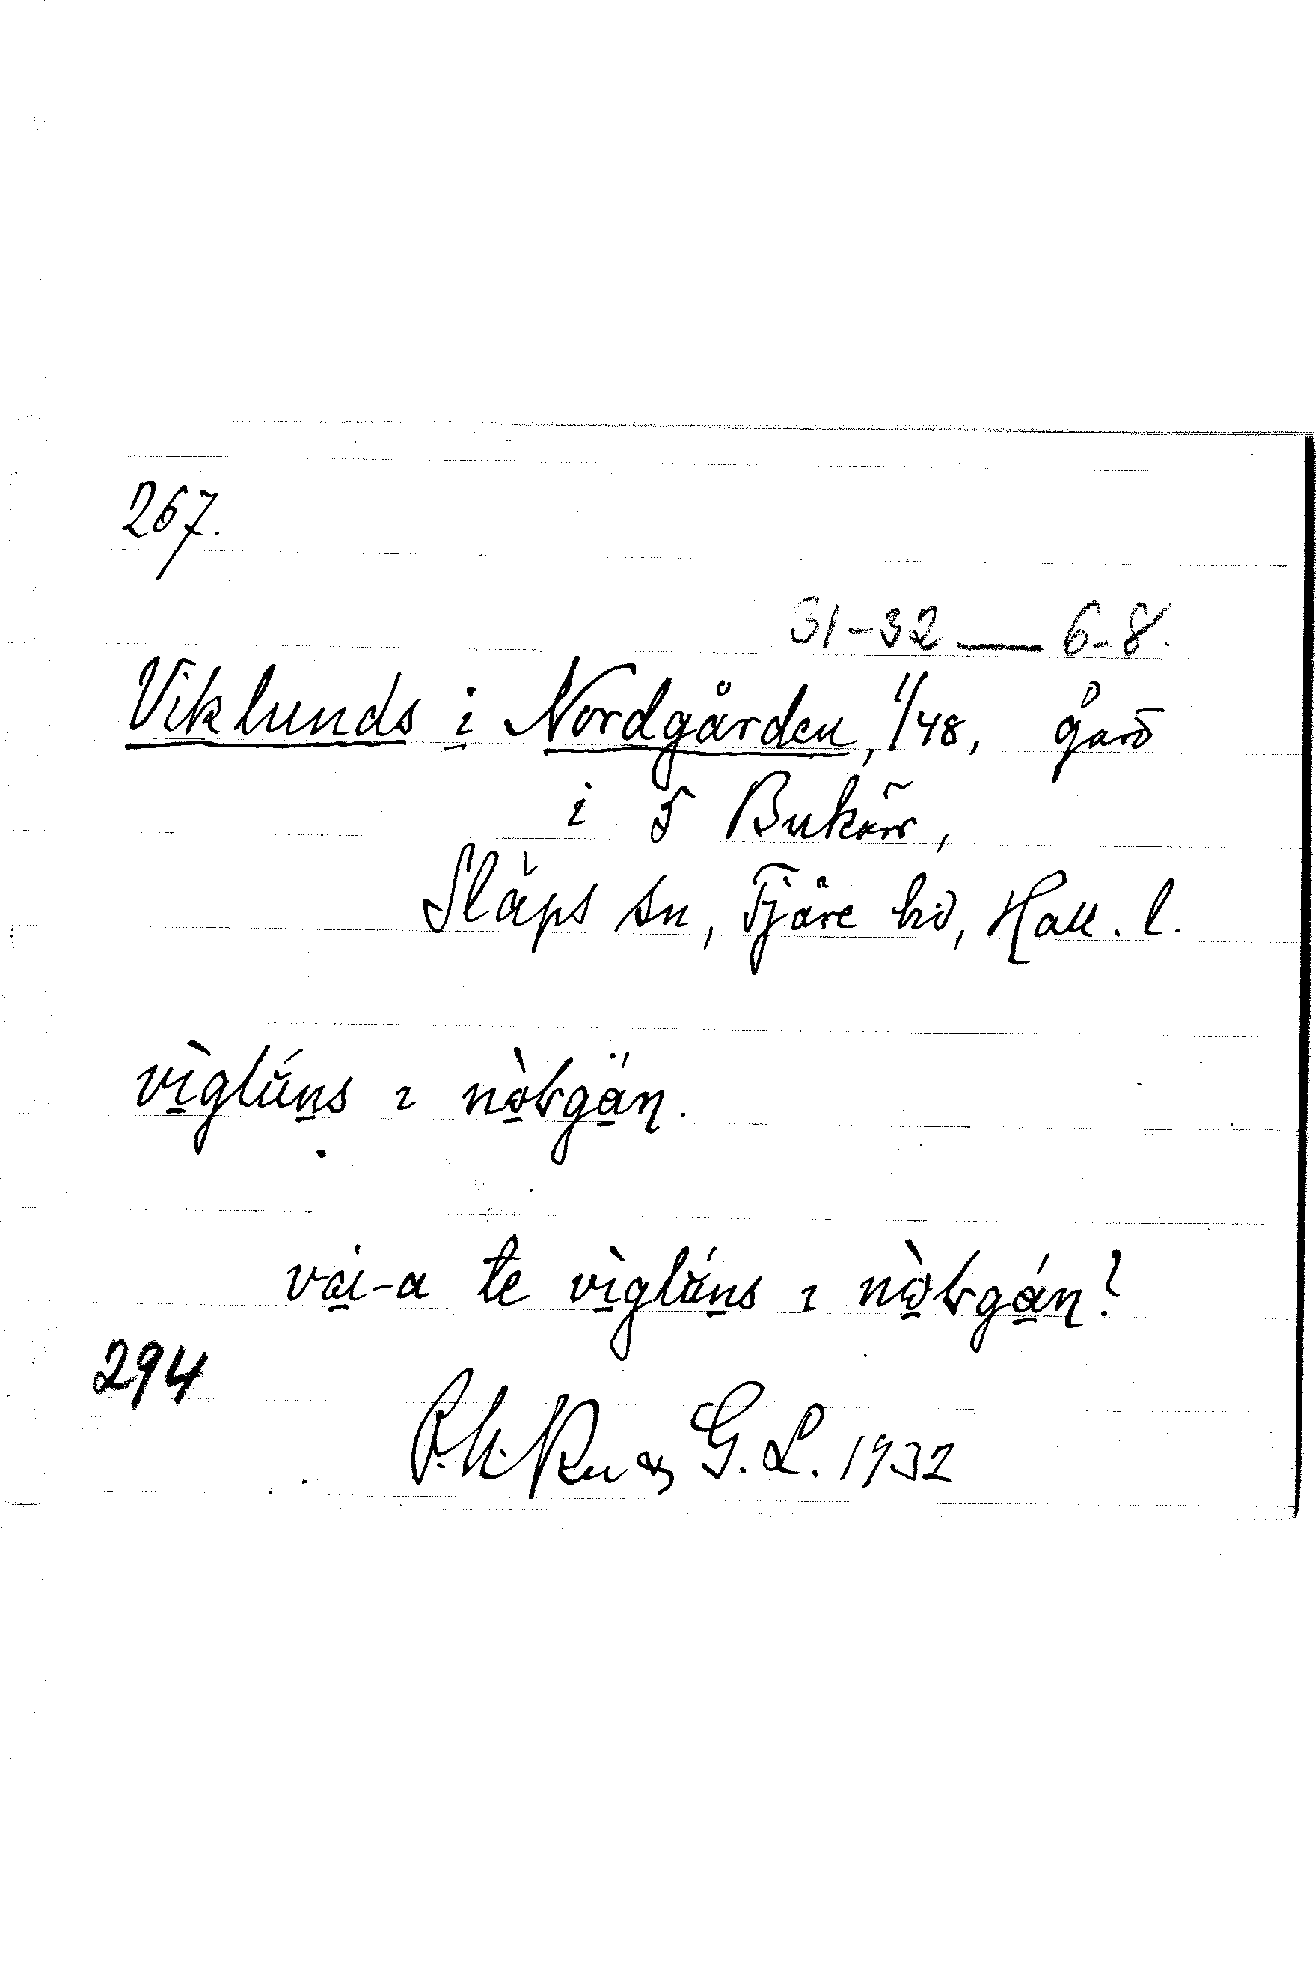 267.
31-32 — 6-8.
Viklunds i Nordgården, 1/48, gård
i 5 Bukärr,
Släps sn, Fjäre hd, Hall. l.
vìglúns ı nòrgän.
vai-a te vìglúns ı nòrgán?
294
G. L. 1932